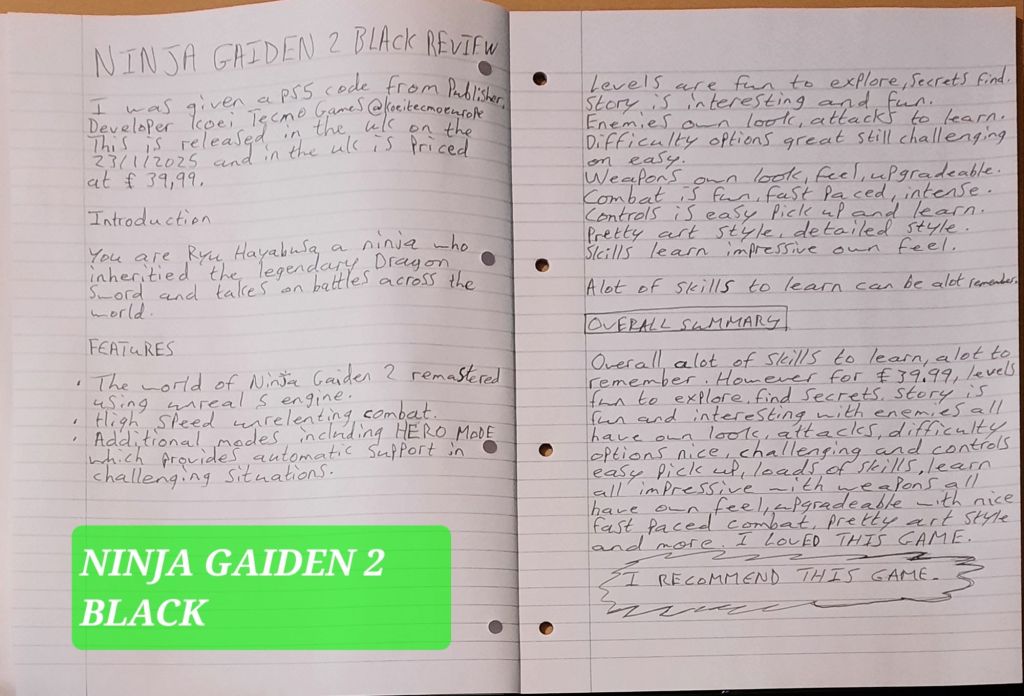 NINJA GAIDEN 2 BLACK REVIEW
I was given a PS5 code from Publisher,
Developer Koei Tecmo Games@koeitecmoeurope
This is released in the uk on the
23/1/2025 and in the uk is Priced
at £39,99.
Introduction
You are Ryu Hayabusa a ninja who
inheritied the legendary Dragon
Sword and takes on battles across the
world.
FEATURES
• The world of Ninja Gaiden 2 remastered
using unreal 5 engine.
• High Speed unrelenting combat.
• Additional modes including HERO MODE
which provides automatic support in
challenging situations.
NINJA GAIDEN 2
BLACK
Levels are fun to explore, secrets find.
Story is interesting and fun.
Enemies own look, attacks to learn.
Difficulty options great still challenging
on easy.
Weapons own look, feel, upgradeable.
Combat is fun, fast paced, intense.
Controls is easy Pick up and learn.
Pretty art style, detailed style.
Skills learn impressive own feel.
Alot of skills to learn can be alot remember.
OVERALL SUMMARY
Overall alot of skills to learn, alot to
remember. However for £39.99, levels
fun to explore, find secrets, story is
fun and interesting with enemies all
have own look, attacks, difficulty
options nice, challenging and controls
easy pick up, loads of skills, learn
all impressive with weapons all
have own feel, upgradeable with nice
fast paced combat, Pretty art style
and more. I LOVED THIS GAME.
I RECOMMEND THIS GAME.